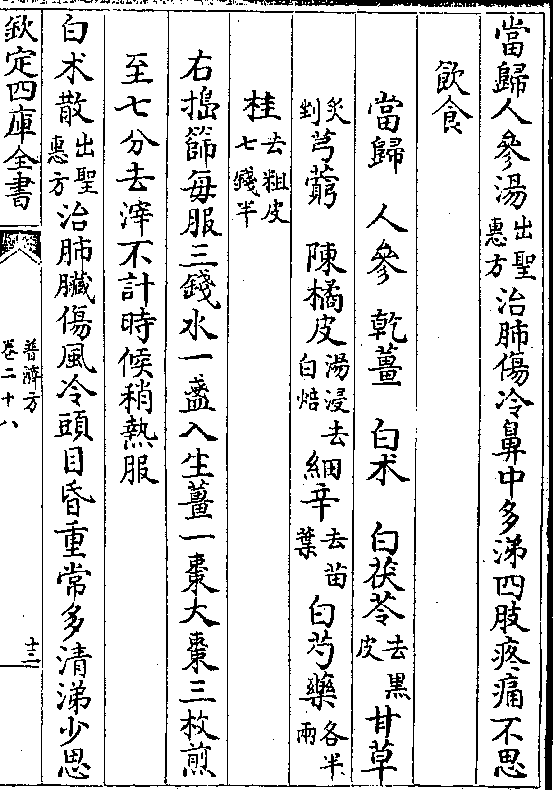 當歸人參湯出聖惠方治肺傷冷鼻中多涕四肢疼痛不思
飲食
當歸 人參 乾薑 白术 白茯苓去黑皮 甘草
炙剉芎藭 陳橘皮湯浸去白焙 細辛去苗葉 白芍藥各半兩
桂去粗皮七錢半
右搗篩每服三錢水一盞入生薑一棗大棗三枚煎
至七分去滓不計時候稍熱服
白术散出聖惠方治肺臟傷風冷頭目昏重常多清涕少思
欽定四庫全書
普濟方
卷二十八
十二